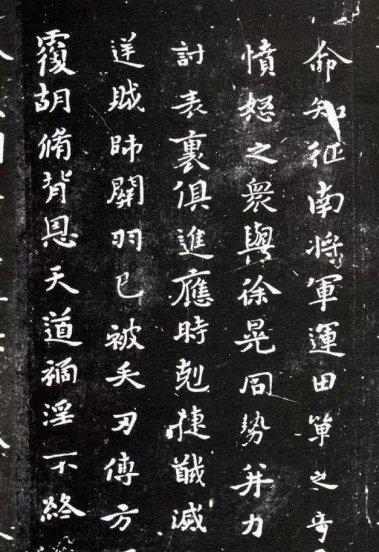 命知征南將軍運田單之奇
憤怒之衆與徐晃同勢并力
討表裏俱進應時剋捷馘滅
逆賊帥關羽已被矢刃傅方
覆胡脩背恩天道禍淫不終